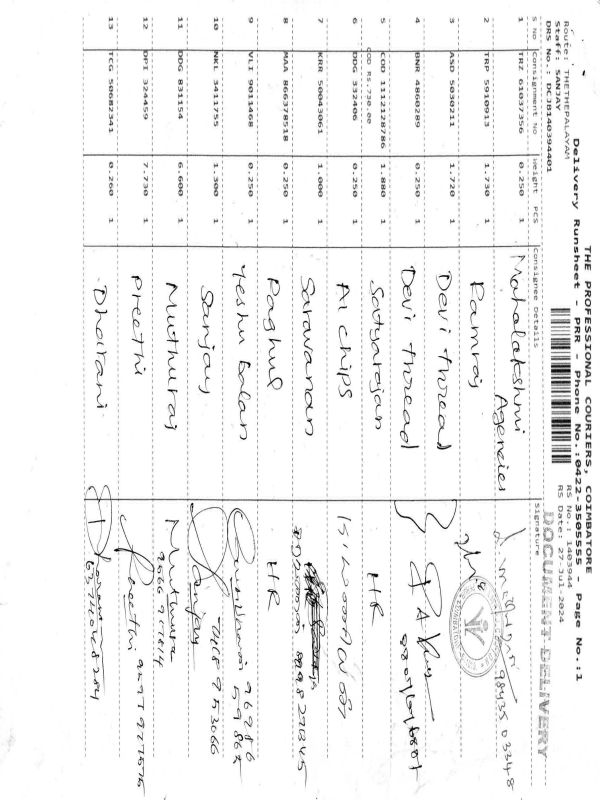 THE PROFESSIONAL COURIERS, COIMBATORE
Delivery Runsheet - PRR - Phone No.:0422-3505555 - Page No.:1
DRS No.: DCJB140394401
RS No.: 1403944
Staff: SANJAY
RS Date: 27-Jul-2024
Route: THETHEPALAYAM
DOCUMENT DELIVERY
S No Consignment No Weight PCS Consignee Details Signature
1 TRZ 61037356 0.250 1 Mahalakshmi Agencies 98435 03348
2 TRP 5910913 1.730 1 Ramraj
3 ASD 5030211 1.720 1 Devi thread
4 BNR 4860289 0.250 1 Devi thread
5 COD 1112128786 1.880 1 Satyarajan HR
COD RS.730.00
6 DDG 332406 0.250 1 Ai chips
7 KRR 50043061 1.000 1 Saravanan
8 MAA 866378518 0.250 1 Raghul HR
9 VLI 9011468 0.250 1 Yeshu balan
10 NKL 3411755 1.300 1 Sanjay Sanjay
11 DDG 831154 6.600 1 Muthuraj Muthura
12 DPI 324459 7.730 1 Preethi Preethi
13 TCG 50682341 0.260 1 Dharani